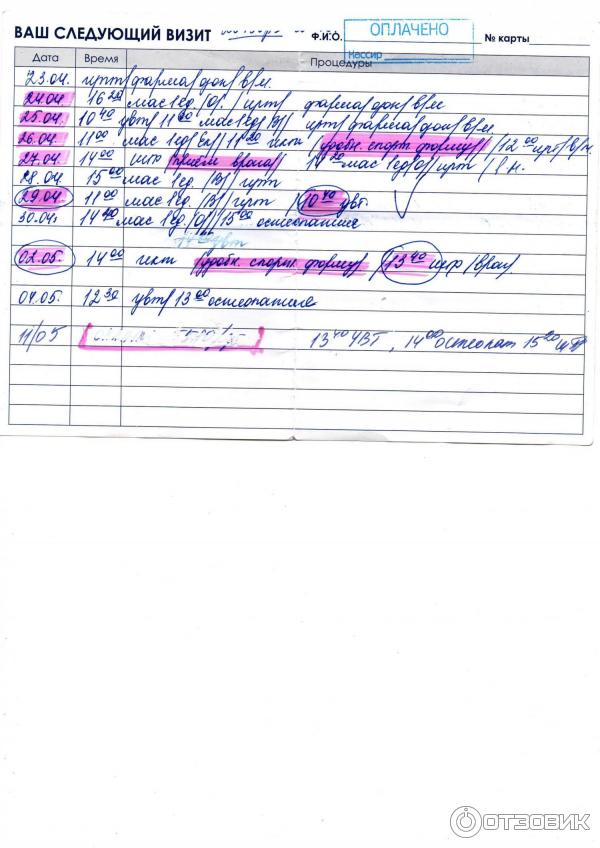 ВАШ СЛЕДУЮЩИЙ ВИЗИТ Ф.И.О. ОПЛАЧЕНО № карты
Кассир
Дата Время Процедуры
23.04. ирт/фарма/дон/в/м
24.04 16 20 мас 1ед /О/ ирт/ фарма/дон/в/м
25.04 10 40 увт/ 11 00 мас 1ед /В/ ирт/фарма/дон/в/м.
26.04 11 00 мас 1ед/ 11 20 /удобн. спорт форму/ /12 00 ирт/в/м.
27.04 14 00 /приём врача/ 14 20 мас 1ед/О/ ирт/
28.04 15 00 мас 1ед. /В/ ирт
29.04 11 00 мас 1ед. /В/ ирт /10 40 увт.
30.04. 14 40 мас 1ед /О/ /15 00 остеопатия
увт
02.05. 14 00 /удобн. спорт. форму/ /13 40 /врач/
07.05. 12 30 увт/ 13 00 остеопатия
11/05 13 40 УВТ, 14 00 остеопат 15 20
ОТЗОВИК